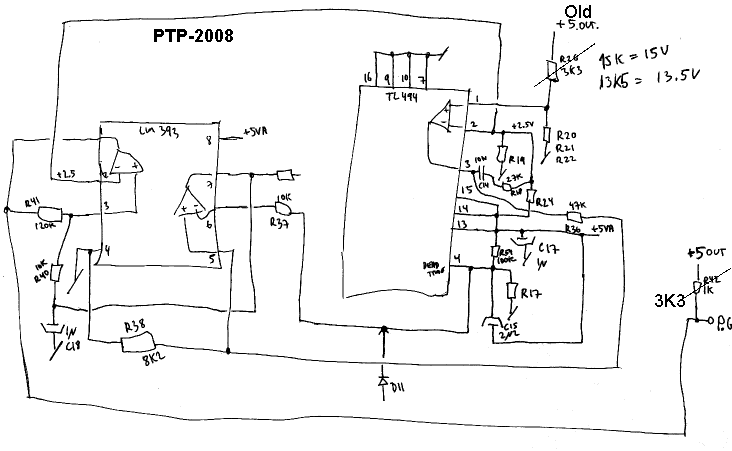 Old
+5.OUT.
PTP-2008
R26
3K3
15K = 15V
13K5 = 13.5V
16 9 10 7
TL494
1
LM 393
8 +5VA
2
+2.5V
R20
R21
R22
+2.5
2
7
3
10N
C14
R19
27K
R18
R24
R41
120K
3
10K
R37
6
15
14
13
47K
R36
+5VA
4
5
R51
100K
C17
1N
+5OUT
10K
R40
DEAD
TIME
4
R17
R42
1K
3K3
P.G
1N
C18
R38
8K2
C15
2N2
D11